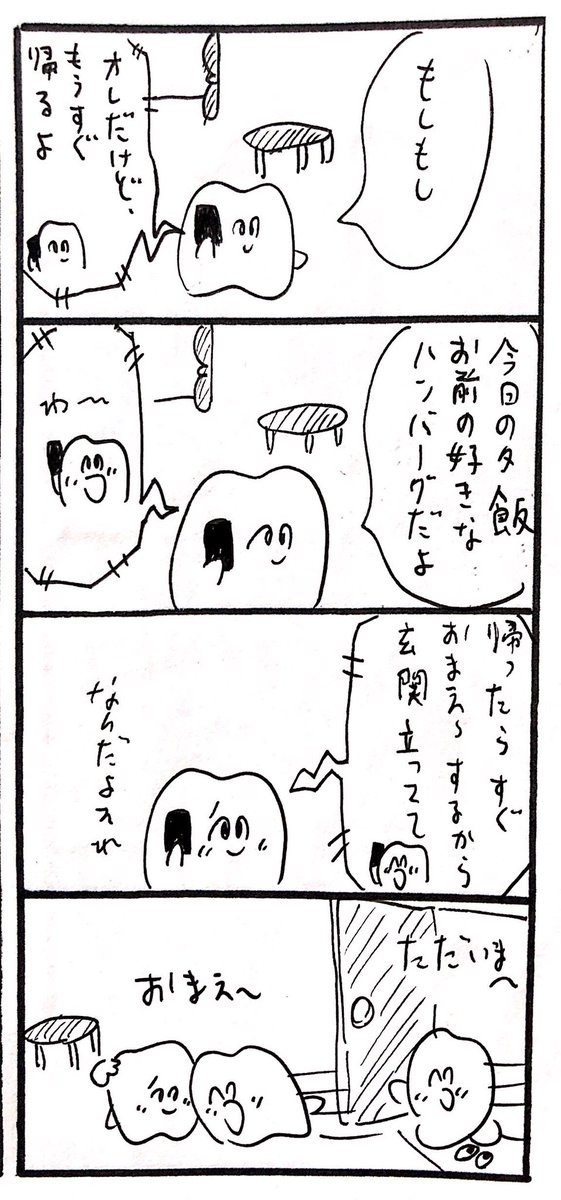 もしもし
オレだけど、
もうすぐ
帰るよ
今日の夕飯
お前の好きな
ハンバーグだよ
わ〜
帰ったらすぐ
おまえ〜するから
玄関立ってて
なんだよそれ
ただいま〜
おまえ〜